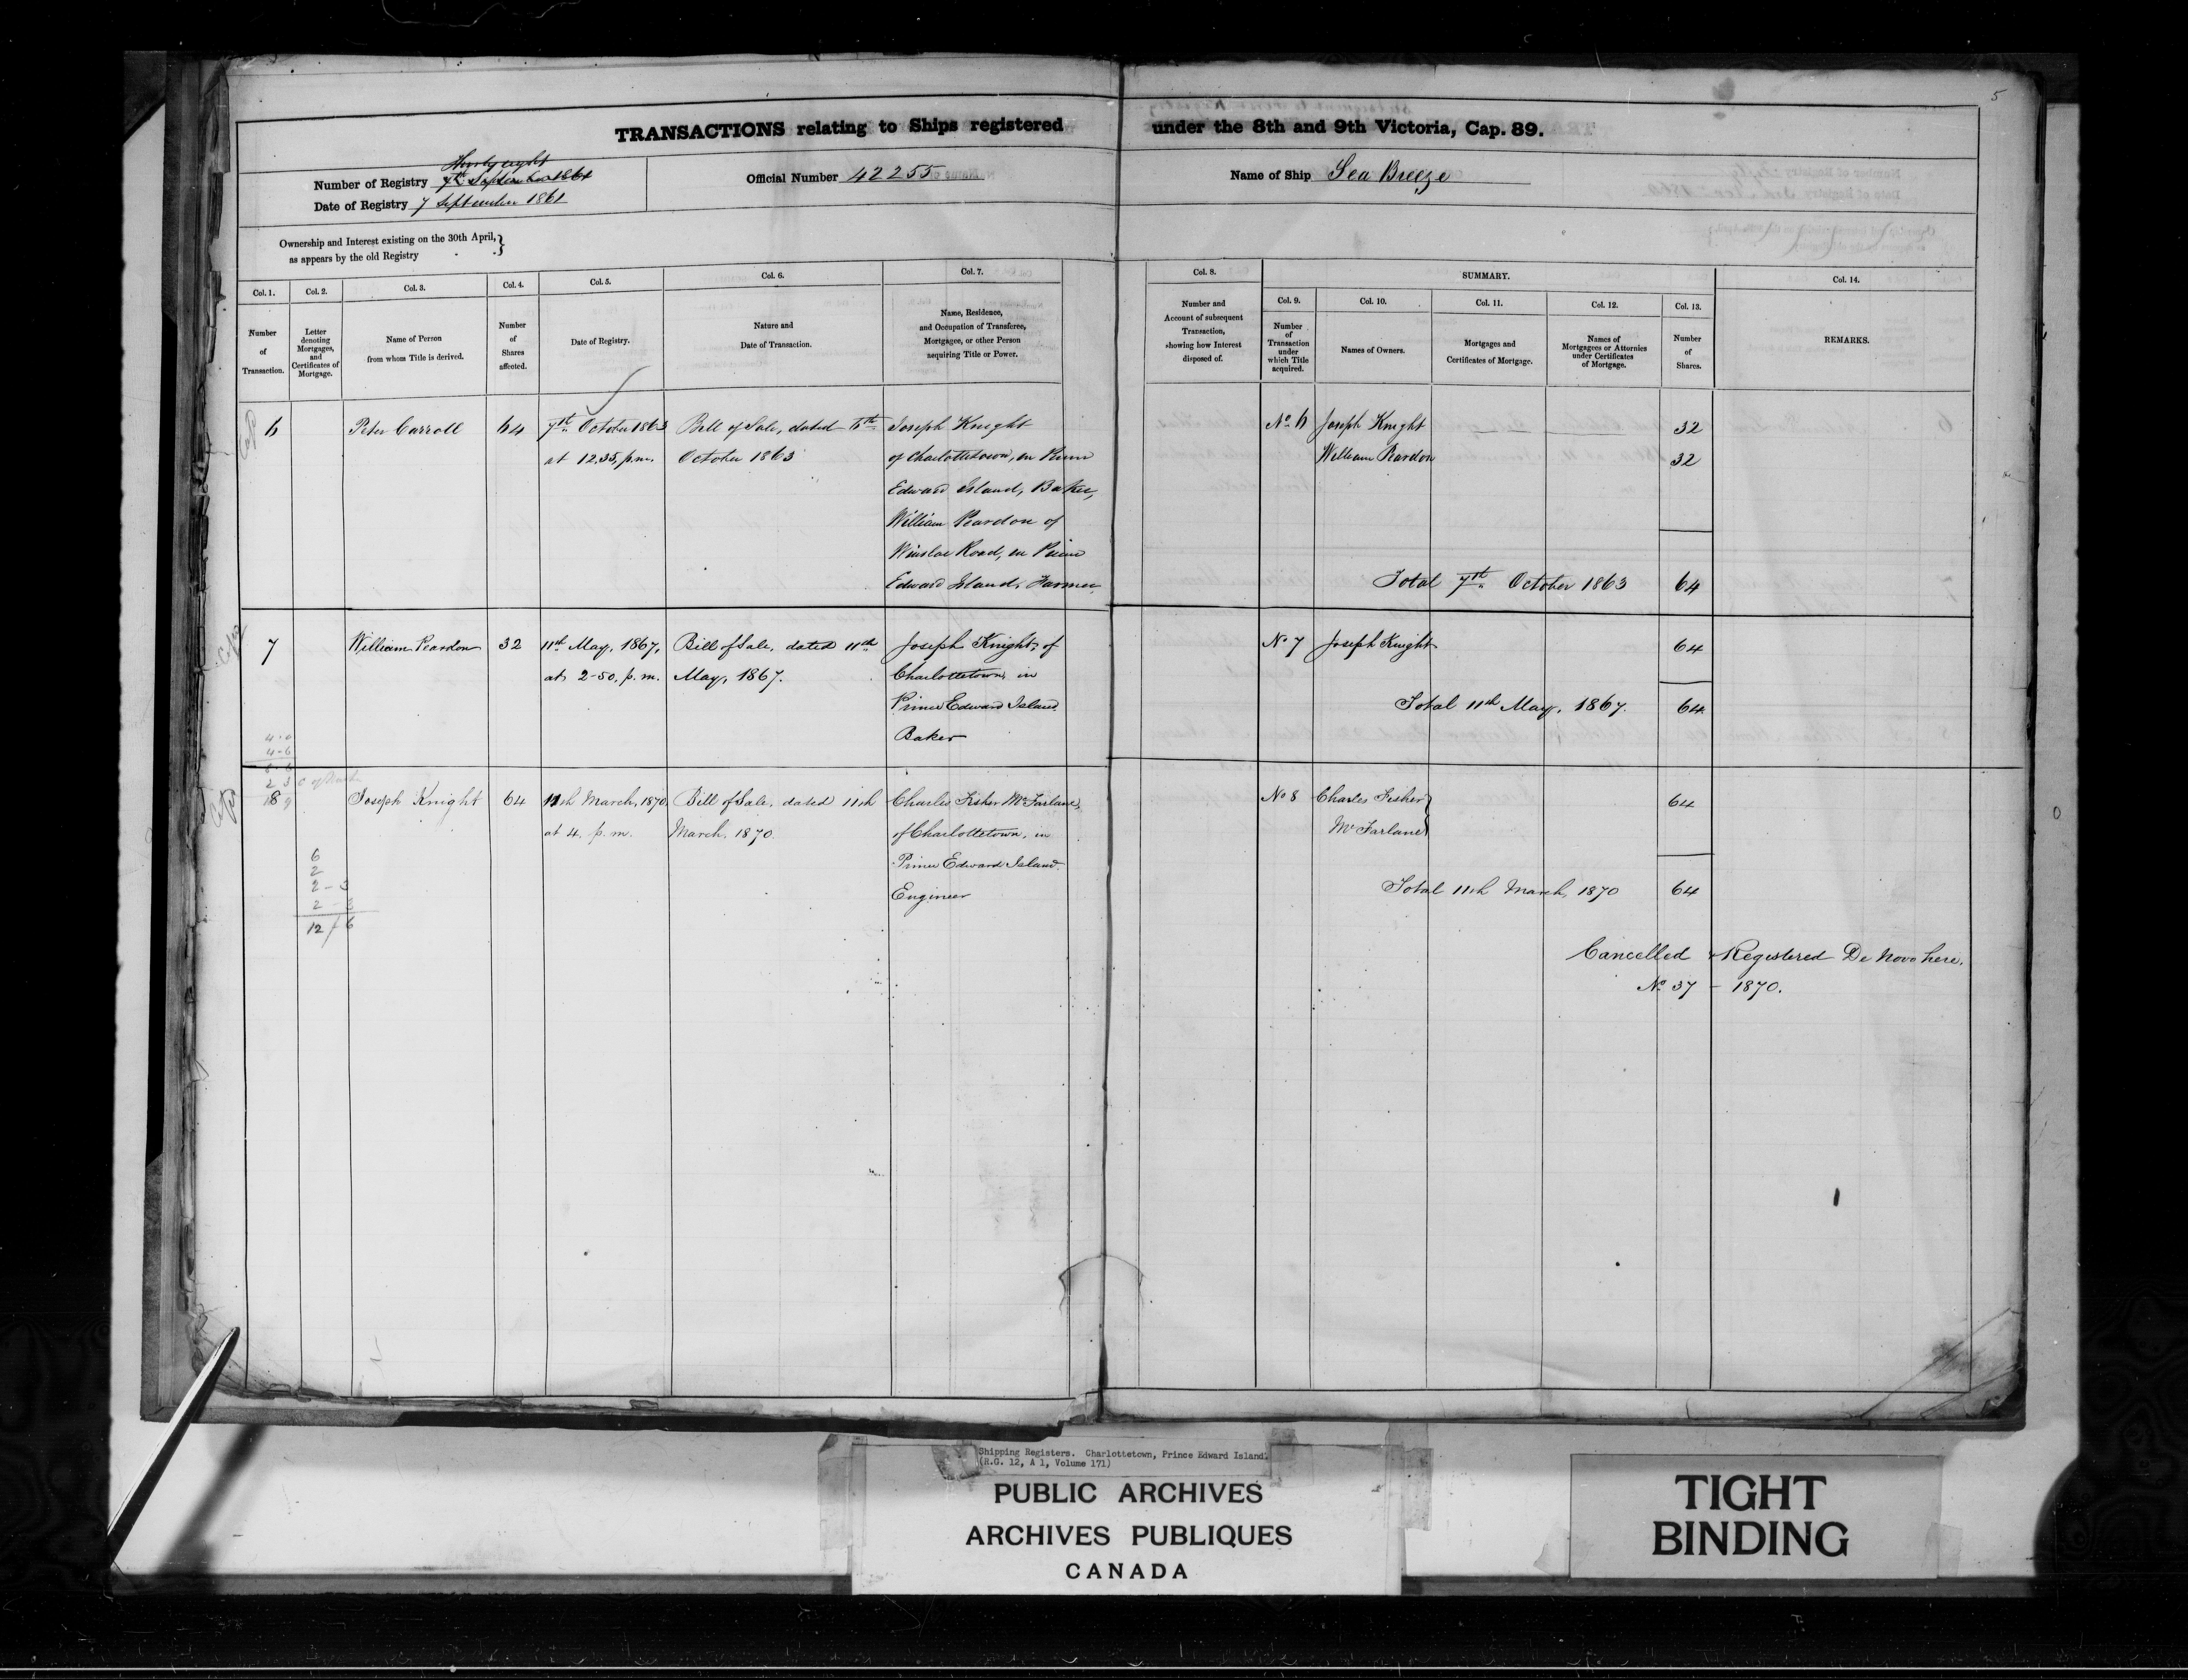 5
TRANSACTIONS relating to Ships registered under the 8th and 9th Victoria, Cap. 89.
Number of Registry Thirty eight
7th September 1861
Date of Registry 7 September 1861
Official Number 42255
Name of Ship Sea Breeze
Ownership and Interest existing on the 30th April,
as appears by the old Registry
Col. 1. Col. 2. Col. 3. Col. 4. Col. 5. Col. 6. Col. 7. Col. 8. SUMMARY. Col. 14.
Col. 9. Col. 10. Col. 11. Col. 12. Col. 13.
Number of Transaction.
Letter denoting Mortgages, and Certificates of Mortgage.
Name of Person from whom Title is derived.
Number of Shares affected.
Date of Registry.
Nature and Date of Transaction.
Name, Residence, and Occupation of Transferee, Mortgagee, or other Person acquiring Title or Power.
Number and Account of subsequent Transaction, showing how Interest disposed of.
Number of Transaction under which Title acquired.
Names of Owners.
Mortgages and Certificates of Mortgage.
Names of Mortgagees or Attornies under Certificates of Mortgage.
Number of Shares.
REMARKS.
6 Peter Carroll 64 7th October 1863 Bill of Sale, dated 6th Joseph Knight No 6 Joseph Knight 32
at 12.35, p.m. October 1863 of Charlottetown, in Prince William Peardon 32
Edward Island, Baker,
William Peardon of
Winsloe Road, in Prince
Edward Island, Farmer. Total 7th October 1863 64
7 William Peardon 32 11th May, 1867, Bill of Sale, dated 11th Joseph Knight, of No 7 Joseph Knight 64
at 2-50, p.m. May, 1867. Charlottetown, in
Prince Edward Island. Total 11th May, 1867. 64
Baker
4-6
8 Joseph Knight 64 11th March, 1870 Bill of Sale, dated 11th Charles Fisher McFarlane, No 8 Charles Fisher 64
at 4, p.m. March, 1870 of Charlottetown, in McFarlane
Prince Edward Island
Engineer Total 11th March, 1870 64
6
2
2-3
2-3
12/6
Cancelled & Registered De Novo here.
No 37 - 1870.
Shipping Registers. Charlottetown, Prince Edward Island.
(R.G. 12, A 1, Volume 171)
PUBLIC ARCHIVES
ARCHIVES PUBLIQUES
CANADA
TIGHT
BINDING